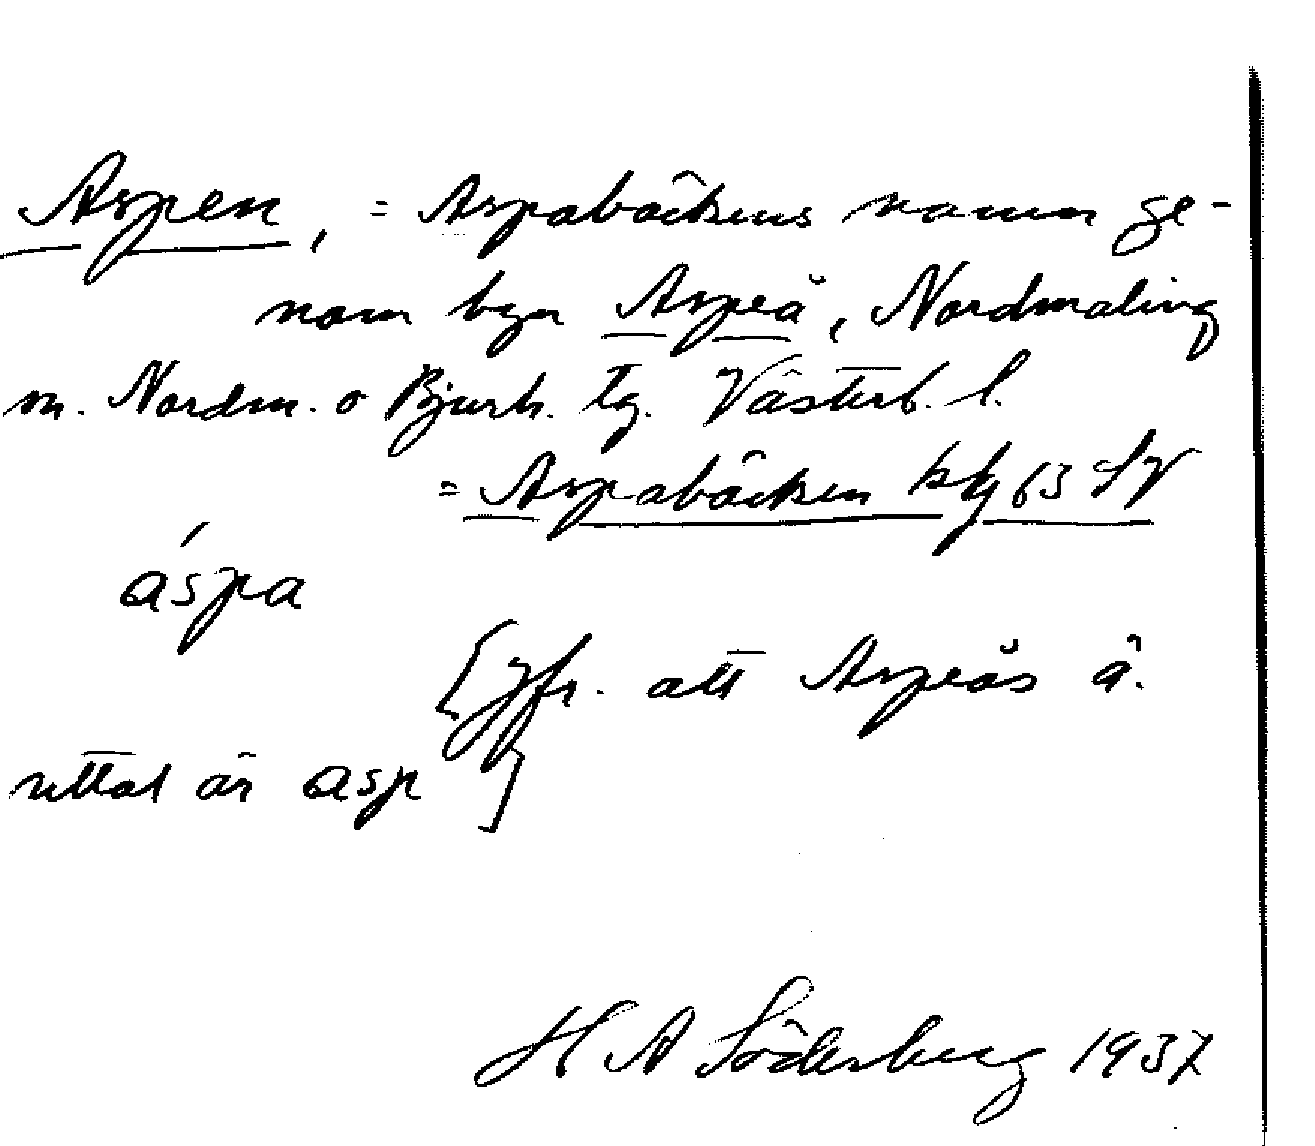 Aspen, = Aspabäckens namn ge-
nom byn Aspeå, Nordmaling
sn. Nordm. o Bjurh. tg. Västerb. l.
= Aspabäcken kbl 63 SV
áspa
[jfr. att Aspeås å.
uttal är asp]
H A Söderberg 1937